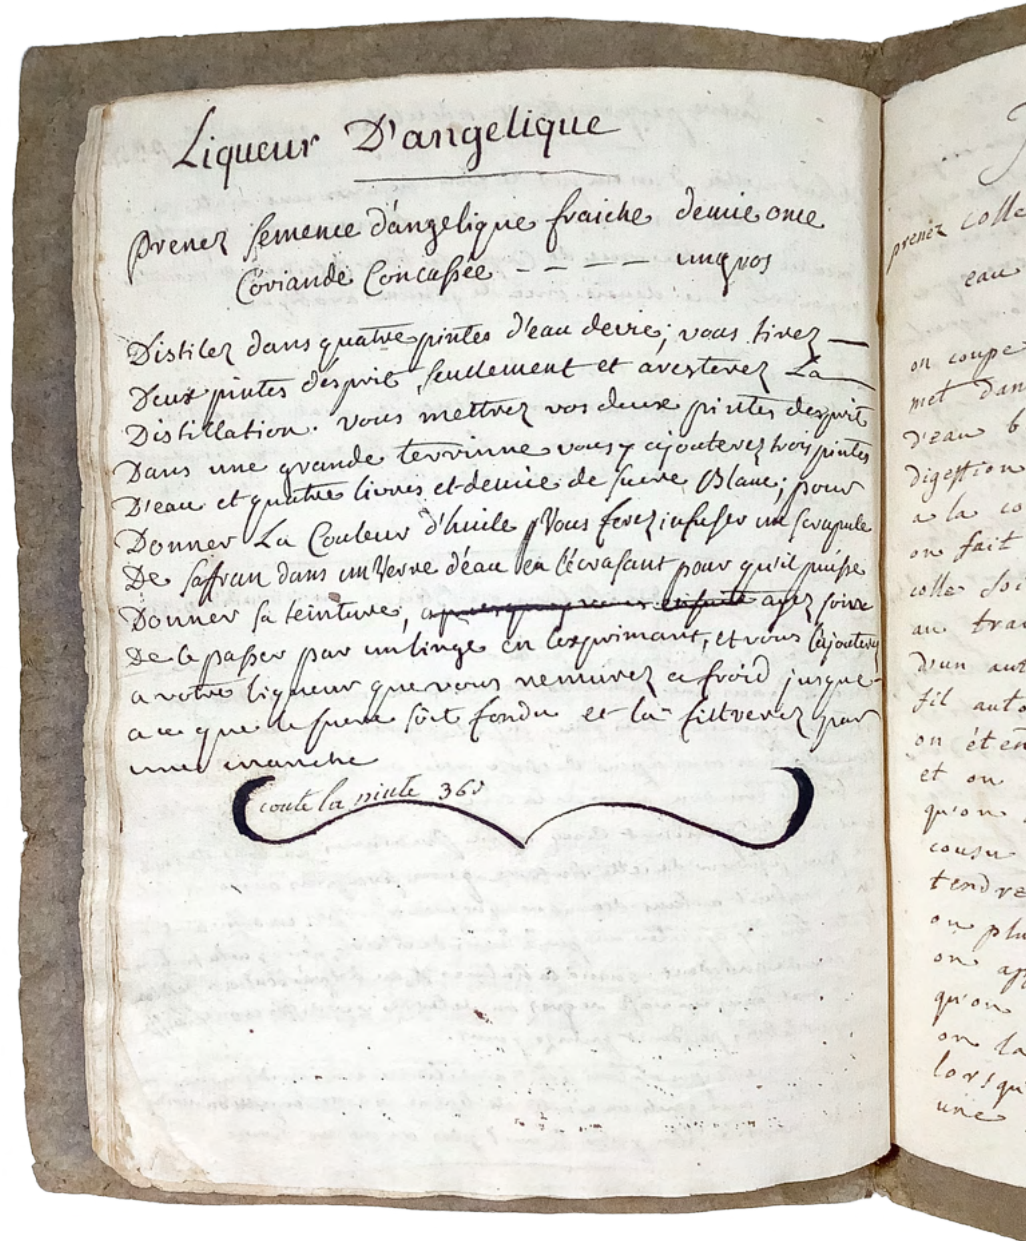 Liqueur D'angelique
prenez semence d'angelique fraiche demie once
Coriande Concassée - - - - - un gros
Distilez dans quatre pintes d'eau devie; vous tirez —
Deux pintes desprit seulement et aresterez La —
Distillation. vous mettrez vos deux pintes desprit
Dans une grande terrinne vous y ajouterez trois pintes
D'eau et quatre livres et demie de sucre Blanc; pour
Donner La Couleur d'huile Vous ferez infuser un scrupule
De saffran dans un Verre d'éau en l'écrasant pour qu'il puisse
Donner sa teinture, ensuite ayez soin
De le passer par un linge en l'exprimant, et vous l'ajouterez
a votre liqueur que vous remurez a froid jusque-
a ce que le sucre soit fondu et la filtrerez par
une manche
coute la pinte 36s
prenéz colle
eau
on coupe
met dans
d'eau b
digestion
a la co
on fait
colle
au tra
d'un aut
fil auto
on
et on
qu'on
cousu
tendre
on plu
on
qu'on
on la
lorsqu
une